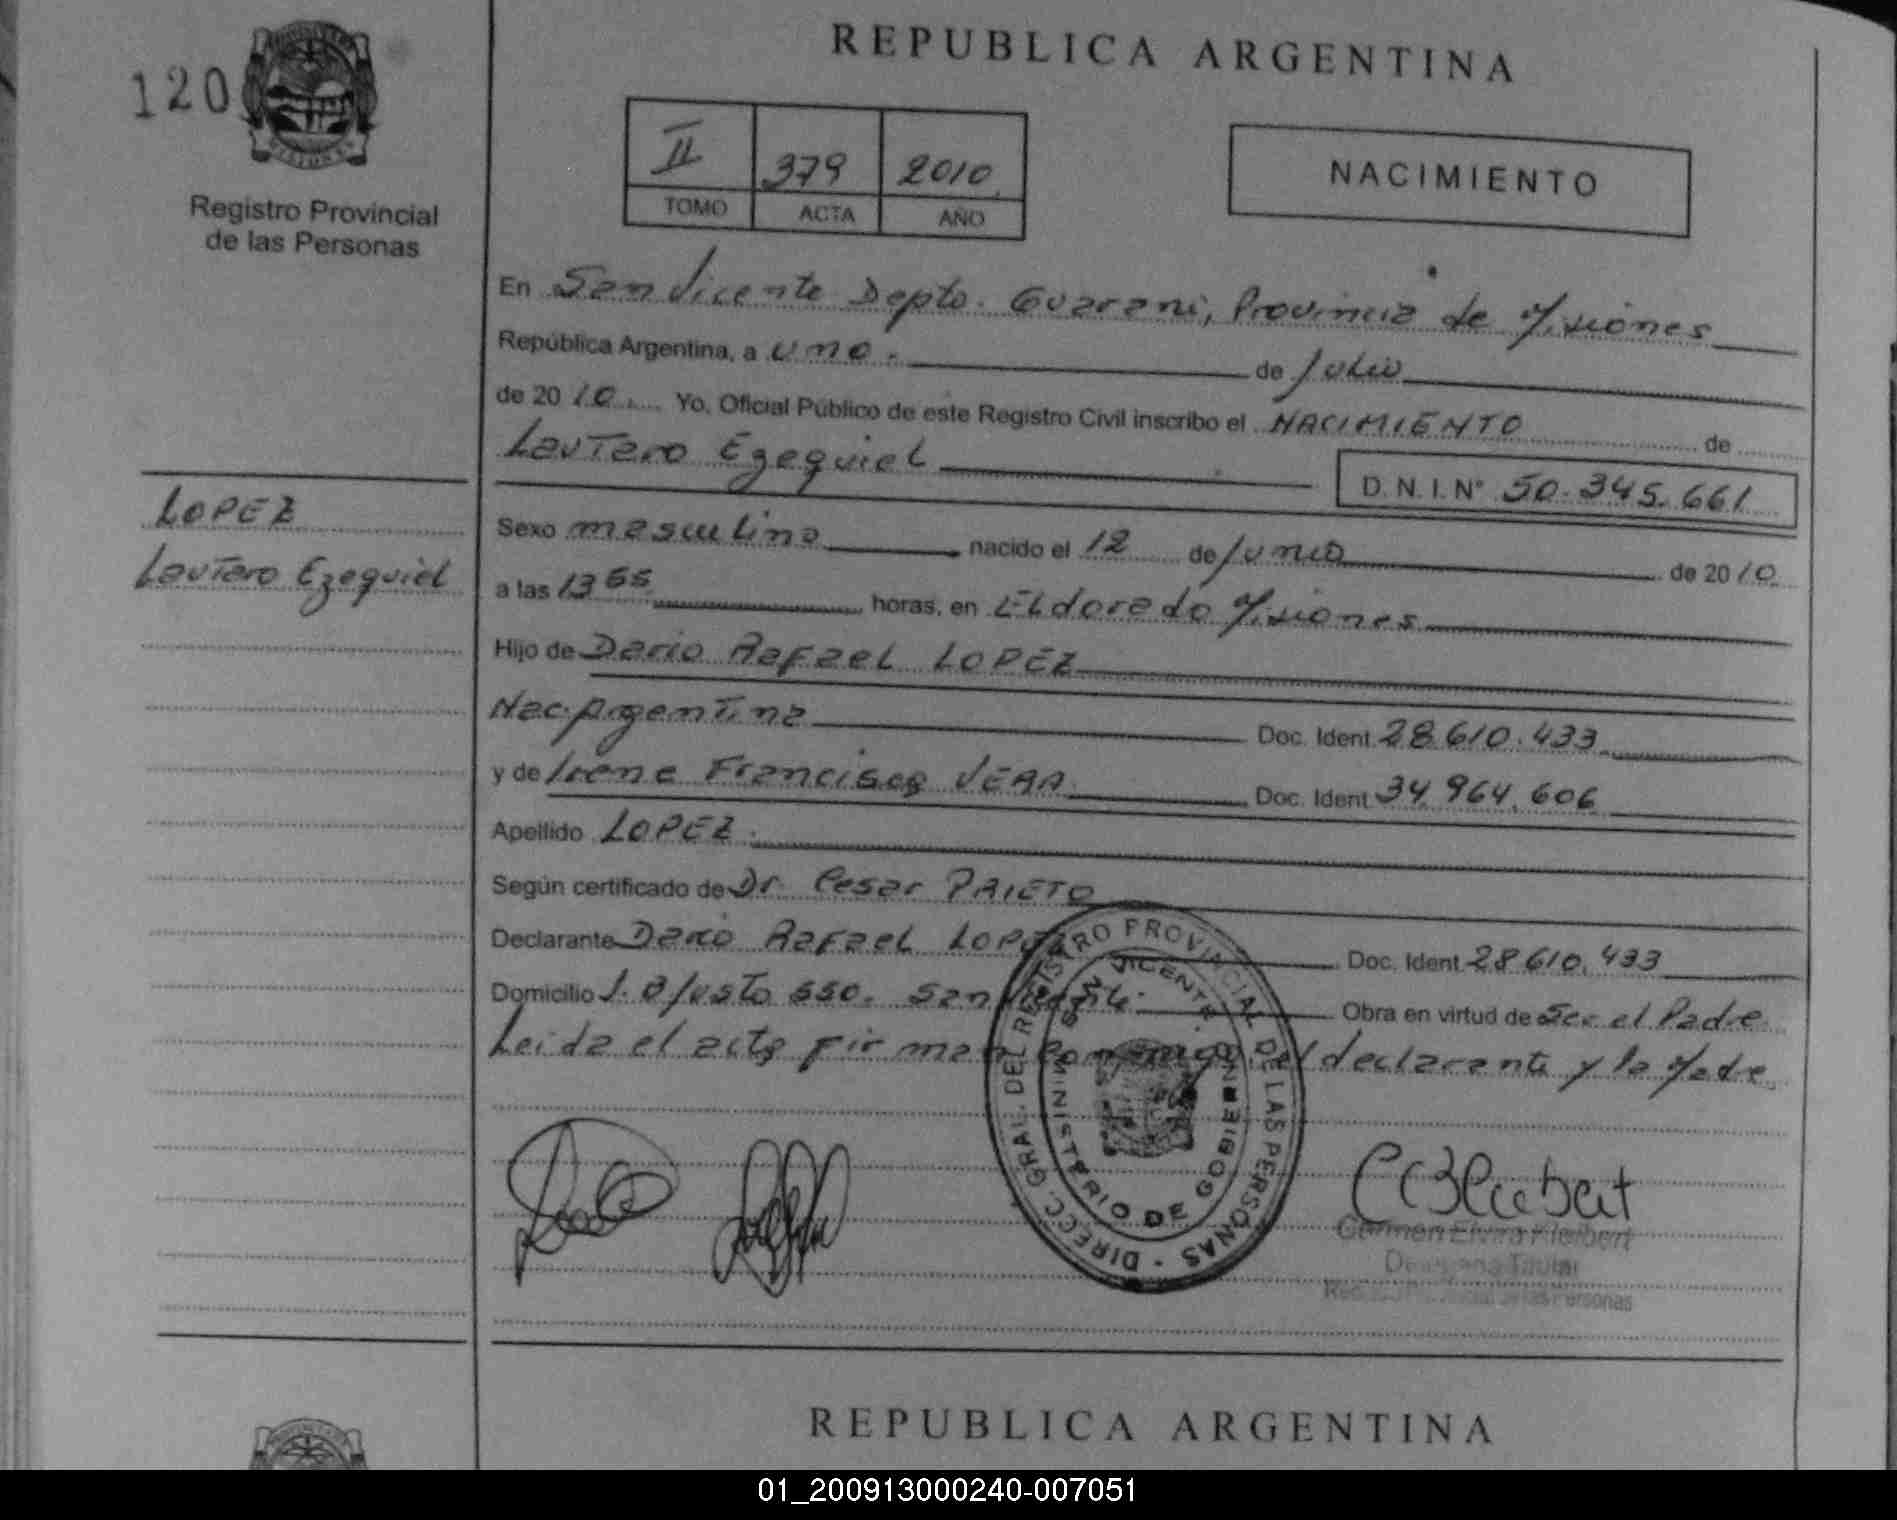 REPUBLICA ARGENTINA
120
Registro Provincial
de las Personas
II 379 2010
TOMO ACTA AÑO
NACIMIENTO
En San Vicente Depto. Guarani, Provincia de Misiones
República Argentina, a uno. de Julio
de 20 10. Yo, Oficial Público de este Registro Civil inscribo el NACIMIENTO de
Lautaro Ezequiel
D. N. I. N° 50.345.661
LOPEZ
Lautaro Ezequiel
Sexo masculino nacido el 12 de Junio de 20 10
a las 13 horas, en ELdorado Misiones
Hijo de Dario Rafael LOPEZ
Nac. Argentina Doc. Ident. 28.610.433
y de Irene Francisca VERA Doc. Ident. 34.964.606
Apellido LOPEZ.
Según certificado de Dr. Cesar PRIETO
Declarante Dario Rafael LOPEZ Doc. Ident. 28.610.433
Domicilio San Vicente. Obra en virtud de Ser el Padre
Leida el acta firman conmigo el declarante y la Madre.
DIRECC. GRAL. DEL REGISTRO PROVINCIAL DE LAS PERSONAS
SAN VICENTE
MINISTERIO DE GOBIERNO
Carmen Elvira Kleibert
Titular
Registro Provincial de las Personas
REPUBLICA ARGENTINA
01_200913000240-007051